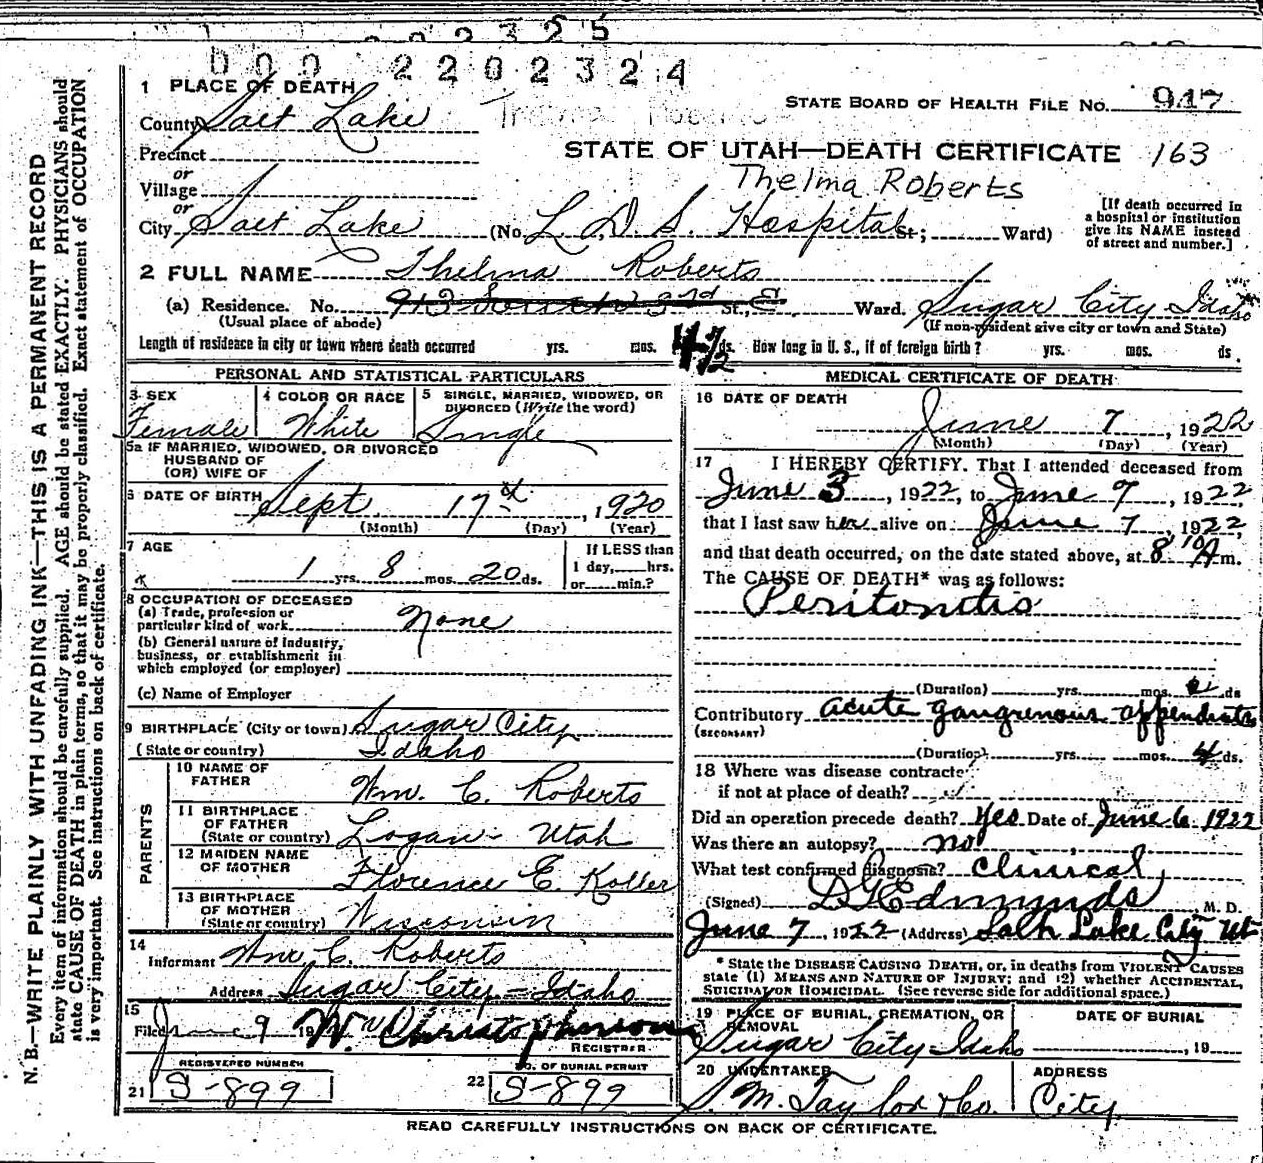 202325
D00 2202324
1 PLACE OF DEATH
STATE BOARD OF HEALTH FILE NO. 947
County Salt Lake
Precinct
STATE OF UTAH—DEATH CERTIFICATE 163
or
Village
Thelma Roberts
or
City Salt Lake (No. L. D. S. Hospital St.; Ward)
[If death occurred in
a hospital or institution
give its NAME instead
of street and number.]
2 FULL NAME Thelma Roberts
(a) Residence. No. 913 South 3rd St., E Ward. Sugar City Idaho
(Usual place of abode) (If non-resident give city or town and State)
Length of residence in city or town where death occurred yrs. mos. 4 1/2 ds. How long in U. S., if of foreign birth? yrs. mos. ds.
PERSONAL AND STATISTICAL PARTICULARS
3 SEX 4 COLOR OR RACE 5 SINGLE, MARRIED, WIDOWED, OR
DIVORCED (Write the word)
Female White Single
5a IF MARRIED, WIDOWED, OR DIVORCED
HUSBAND OF
(OR) WIFE OF
6 DATE OF BIRTH Sept. 17th, 1920
(Month) (Day) (Year)
7 AGE
1 yrs. 8 mos. 20 ds.
If LESS than
1 day, hrs.
or min.?
8 OCCUPATION OF DECEASED
(a) Trade, profession or
particular kind of work None
(b) General nature of industry,
business, or establishment in
which employed (or employer)
(c) Name of Employer
9 BIRTHPLACE (City or town) Sugar City
(State or country) Idaho
PARENTS
10 NAME OF
FATHER Wm. C. Roberts
11 BIRTHPLACE
OF FATHER
(State or country) Logan - Utah
12 MAIDEN NAME
OF MOTHER Florence E. Koller
13 BIRTHPLACE
OF MOTHER
(State or country) Wisconsin
14
Informant Wm C. Roberts
Address Sugar City - Idaho
15
Filed June 9 19 W. Christopherson
REGISTRER
REGISTERED NUMBER NO. OF BURIAL PERMIT
21 S-899 22 S-899
MEDICAL CERTIFICATE OF DEATH
16 DATE OF DEATH
June 7, 1922
(Month) (Day) (Year)
17 I HEREBY CERTIFY. That I attended deceased from
June 3, 1922, to June 7, 1922,
that I last saw her alive on June 7, 1922,
and that death occurred, on the date stated above, at 8 10 A m.
The CAUSE OF DEATH* was as follows:
Peritonitis
(Duration) yrs. mos. ds
Contributory acute gangrenous appendicitis
(SECONDARY)
(Duration) yrs. mos. 4 ds.
18 Where was disease contracted
if not at place of death?
Did an operation precede death? Yes Date of June 6 1922
Was there an autopsy? no
What test confirmed diagnosis? Clinical
(Signed) D G Edmunds, M. D.
June 7, 1922 (Address) Salt Lake City Ut
* State the DISEASE CAUSING DEATH, or, in deaths from VIOLENT CAUSES
state (1) MEANS AND NATURE OF INJURY; and (2) whether ACCIDENTAL,
SUICIDAL or HOMICIDAL. (See reverse side for additional space.)
19 PLACE OF BURIAL, CREMATION, OR
REMOVAL
DATE OF BURIAL
Sugar City - Idaho , 19
20 UNDERTAKER ADDRESS
S. M. Taylor & Co. City.
READ CAREFULLY INSTRUCTIONS ON BACK OF CERTIFICATE.
N. B.—WRITE PLAINLY WITH UNFADING INK—THIS IS A PERMANENT RECORD
Every item of information should be carefully supplied. AGE should be stated EXACTLY. PHYSICIANS should
state CAUSE OF DEATH in plain terms, so that it may be properly classified. Exact statement of OCCUPATION
is very important. See instructions on back of certificate.